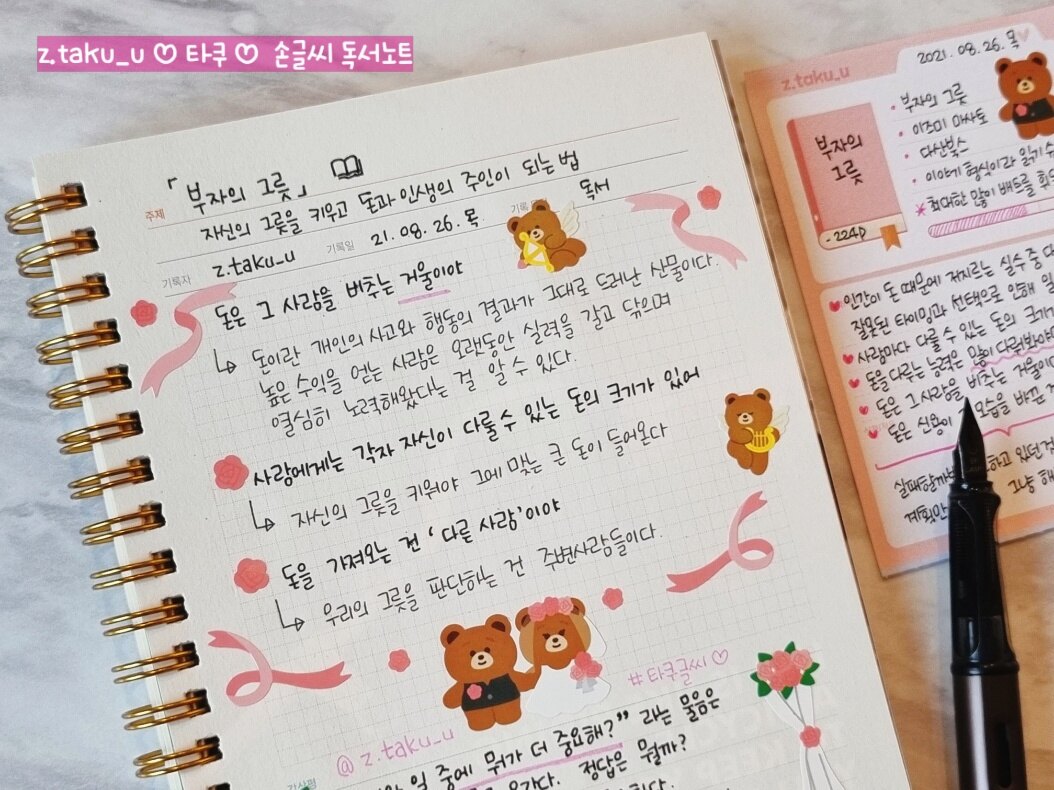 z.taku_u ♡ 타쿠 ♡ 손글씨 독서노트
「부자의 그릇」
주제
자신의 그릇을 키우고 돈과 인생의 주인이 되는 법
기록자 z.taku_u 기록일 21. 08. 26. 목 기록 독서
돈은 그 사람을 비추는 거울이야
↳ 돈이란 개인의 사고와 행동의 결과가 그대로 드러난 산물이다.
높은 수익을 얻는 사람은 오랫동안 실력을 갈고 닦으며
열심히 노력해왔다는 걸 알 수 있다.
사람에게는 각자 자신이 다룰 수 있는 돈의 크기가 있어
↳ 자신의 그릇을 키워야 그에 맞는 큰 돈이 들어온다
돈을 가져오는 건 '다른 사람'이야
↳ 우리의 그릇을 판단하는 건 주변사람들이다.
#타쿠글씨♡
@z.taku_u
일 중에 뭐가 더 중요해?" 라는 물음은
정답은 뭘까?
z.taku_u
2021. 08. 26. 목♡
부자의 그릇
- 224p
• 부자의 그릇
• 이즈미 마사토
• 다산북스
• 이야기 형식이라 읽기 수
* 최대한 많이 배트를 휘두
♥ 인간이 돈 때문에 저지르는 실수 중
잘못된 타이밍과 선택으로 인해 일
♥ 사람마다 다룰 수 있는 돈의 크기
♥ 돈을 다루는 능력은 많이 다뤄봐야
♥ 돈은 그 사람을 비추는 거울이
♥ 돈은 신용이 모습을 바꾼
실패할까봐 하고 있던
계획만 그냥 해